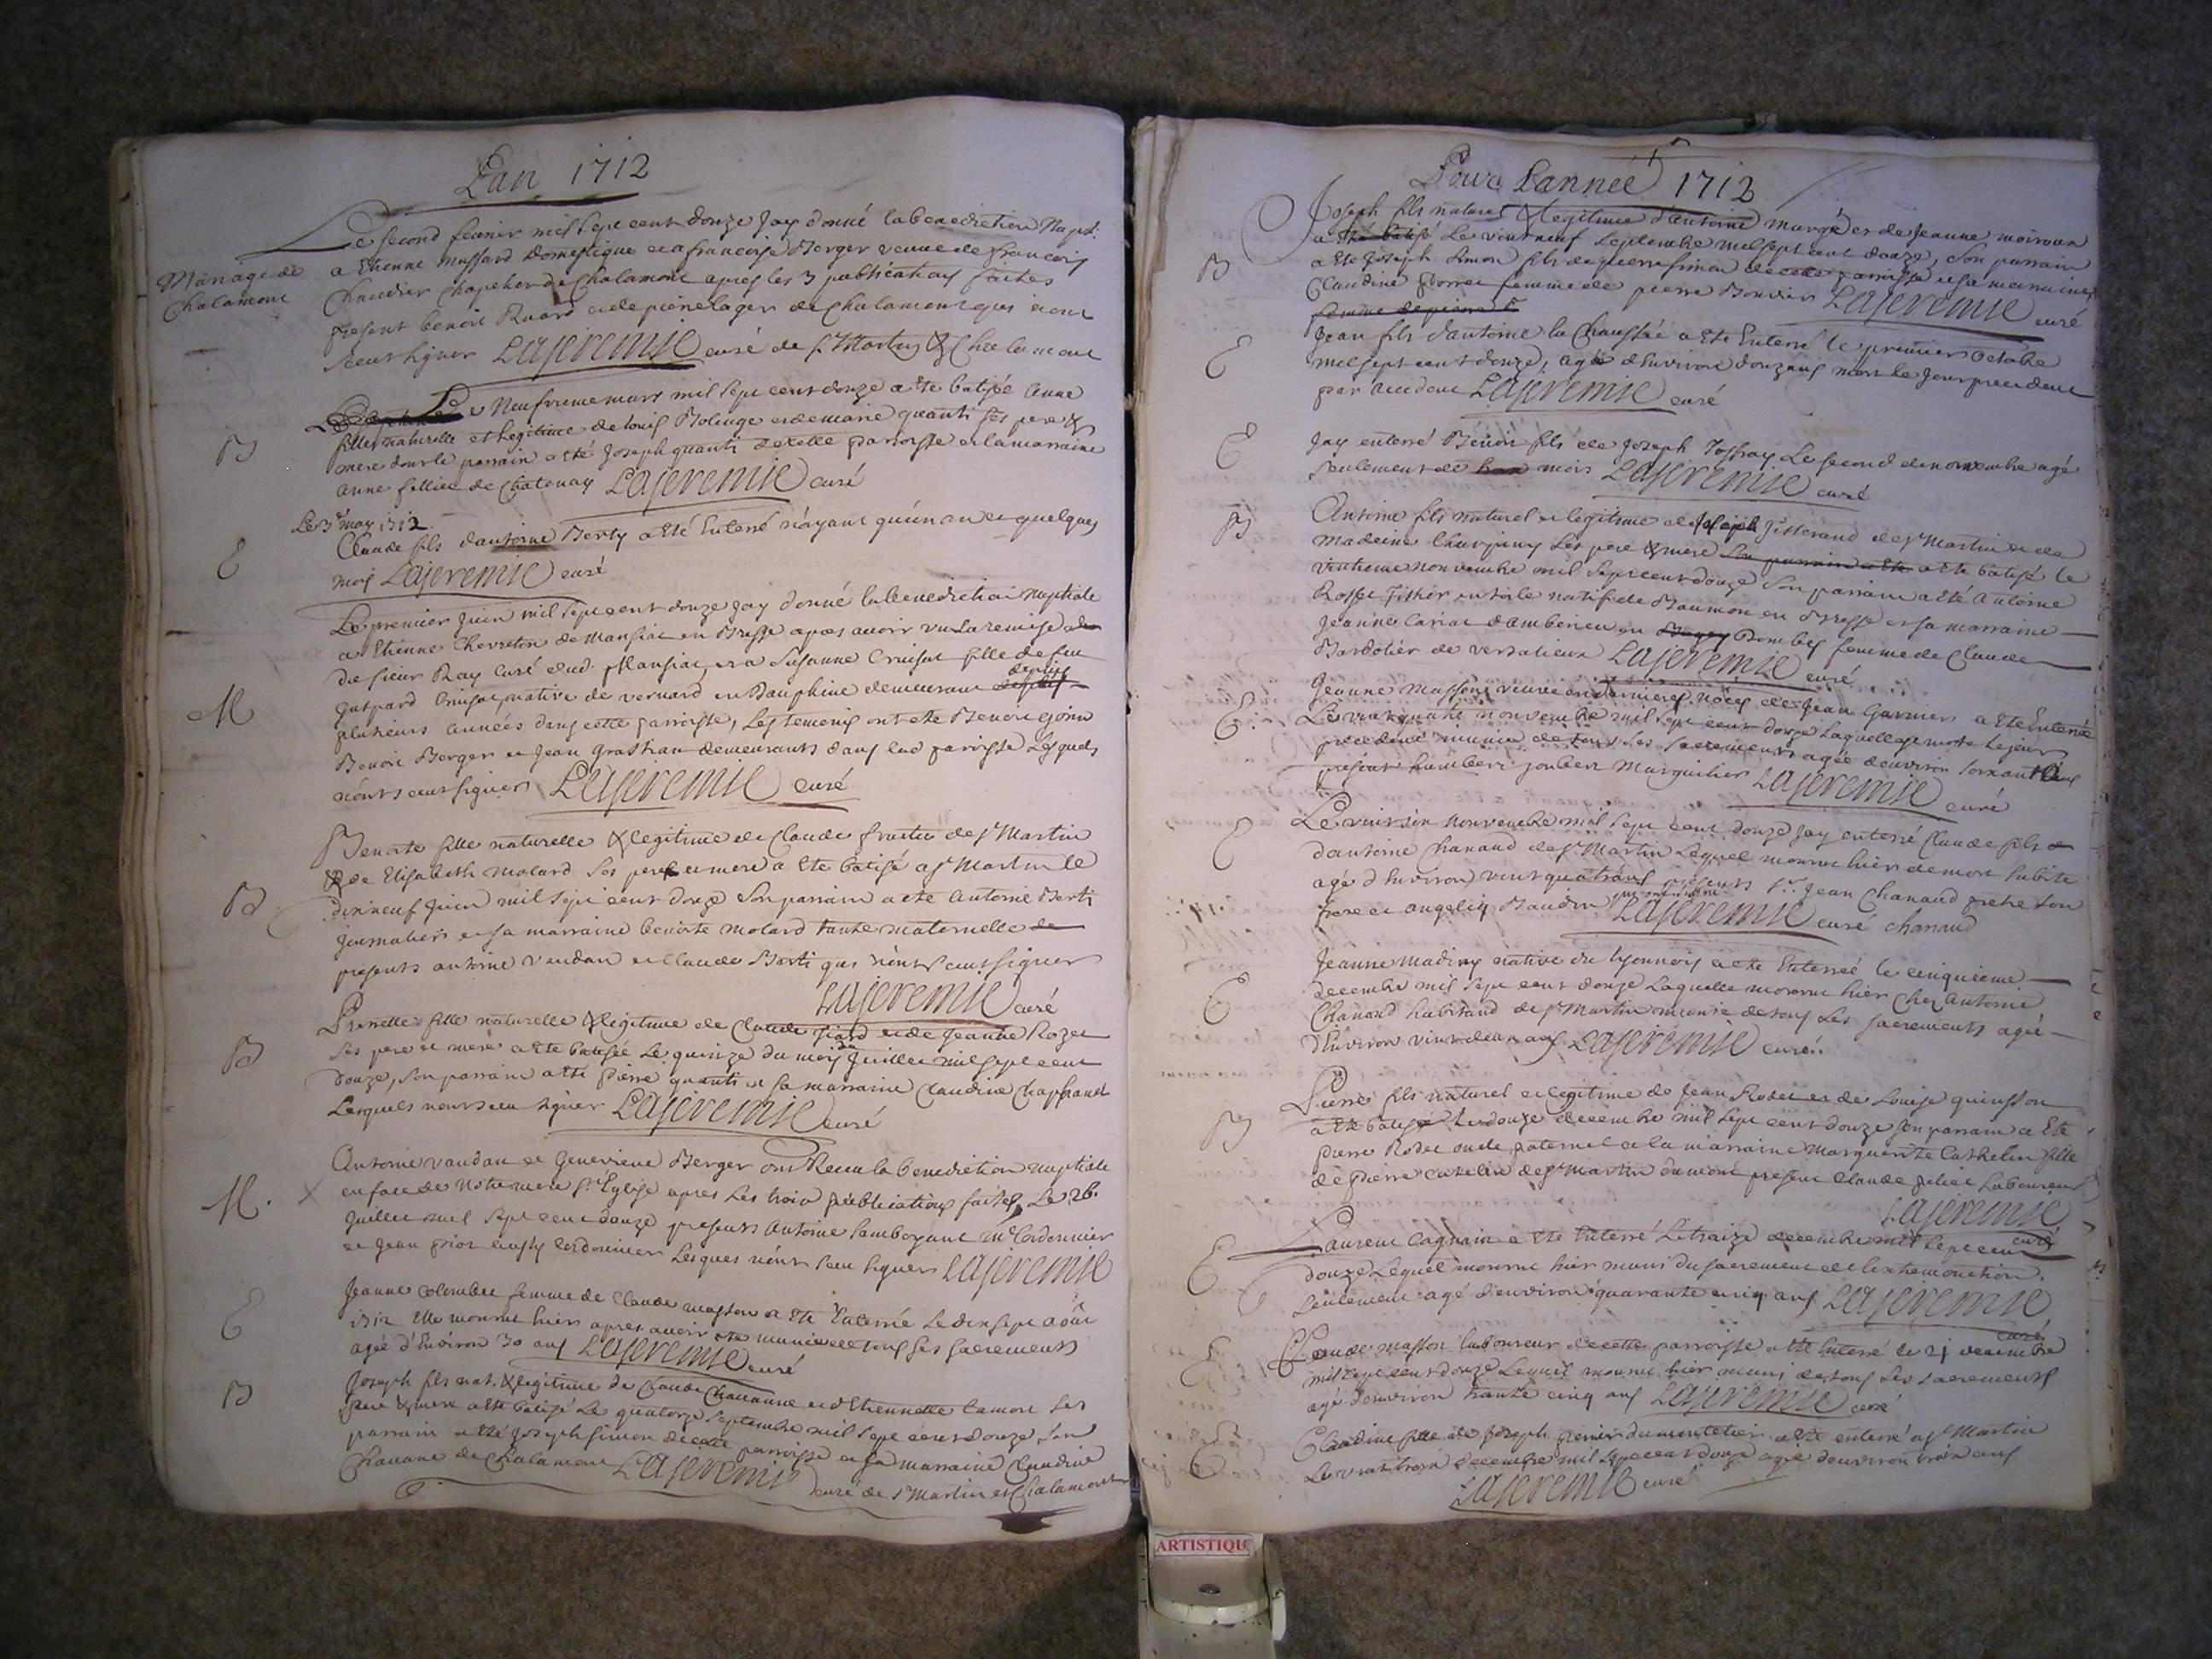 Lan 1712
Mariage de
Chalamont
Le second feuvrier mil sept cent douze Jay donné la benediction Nupt.
a Etienne mussard Domestique et a francoise Berger veuve de francois
Chaudier Chapelier de Chalamont apres les 3 publications faites
present benoit Ruard et de piere lager de Chalamont qui n'ont
sceut signer Lajeremie curé de St Martin & Chalamont
B
Le Neufvieme mars mil sept cent douze a Ete batisée Anne
fille naturelle et legitime de louis Bolinge et de marie quanti ses pere &
mere dont le parrain a eté Joseph quanti de cette parroisse et la marraine
anne fillier de Chatenay Lajeremie curé
Le 3e may 1712
E
Claude fils dantoine Berty a Eté Enterré n'ayant qu'un an et quelques
mois Lajeremie curé
M
Le premier Juin mil sept cent douze Jay donné la benediction nuptiale
a Etienne Chevreton de Mansiat en Bresse apres avoir vu la remise
du sieur Ray curé dud. Mansiat, et a Susanne Cruisat fille de feu
gaspard Cruisat native de vernard en Dauphine demeurant depuis
plusieurs années dans cette parroisse, les temoins ont ete Benoit goin
Benoit Berger et Jean grassian demeurants dans lad parroisse lesquels
n'ont sceut signer Lajeremie curé
B
Benoite fille naturelle & legitime de Claude fruitier de St Martin
& de Elisabeth molard ses pere et mere a Ete batisé a St Martin le
dixneuf Juin mil sept cent douze Son parrain a ete Antoine Berti
Journalier et sa marraine benoite molard tante maternelle
presents antoine vaudan et Claude Berti qui n'ont sceut signer
Lajeremie curé
B
Pernette fille naturelle & legitime de Claude piard et de Jeanne Rozet
ses pere et mere a Ete batisée Le quinze du mois de Juillet mil sept cent
douze, son parrain a Eté pierre quanti et sa marraine Claudine Chaffanel
Lesquels n'ont sceu signer Lajeremie curé
M.
Antoine vaudan et Genevieve Berger ont Receu la benediction nuptiale
en face de Notre mere Ste Eglise apres les trois publications faites, Le 26.
Juillet mil sept cent douze presents Antoine lamboyant me Cordonnier
et Jean prior aussy cordonnier Lesques n'ont sceu signer Lajeremie
E
Jeanne colombe femme de Claude masson a Ete Enterré Le dix sept aôut
1712 Elle mourut hier apres avoir ete munie de tous ses sacrements
agée d'Environ 30 ans Lajeremie curé
B
Joseph fils nat. & legitime de Claude Chavanne et d'Etiennette lamort ses
pere & mere a Ete batisé Le quatorze septembre mil sept cent douze son
parrain a eté Joseph simon de cette parroisse et sa marraine Claudine
Chavane de Chalamont Lajeremie curé de St Martin et Chalamont
Pour Lannée 1712
B
Joseph fils naturel & legitime d'antoine murgé et de Jeanne moiroux
a Le vint neuf septembre mil sept cent douze, son parrain
a Ete Joseph simon fils de pierre simon de cette parroisse et sa marraine
Claudine femme de pierre Bouvier Lajeremie curé
E
Jean fils d'antoine la Chaussée a Ete Enterré le premier octobre
mil sept cent douze, agé d'Environ douz ans mort le Jour precedent
par accident Lajeremie curé
E
Jay enterré Benoit fils de Joseph Joffray Le second de novembre agé
seulement de mois Lajeremie curé
B
Antoine fils naturel et legitime de Joseph Tisserand de St Martin et de
madeine Charpiny ses pere & mere a Ete batisé le
vintieme novembre mil sept cent douze Son parrain a eté Antoine
Rosset Tissier en toile natif de Baumon en Bresse et sa marraine
Jeanne lariat d'amberieu en Dombes femme de Claude
Bardolier de versalieux Lajeremie curé
E
Jeanne masson, veuve en dernieres noces de Jean Garnier a Ete Enterré
Le vint quatre novembre mil sept cent douze laquelle est morte le jour
precedent munie de tous ses sacrements agée d'environ soixant ans
present humbert joubert marguilier Lajeremie curé
E
Le vint six novembre mil sept cent douze Jay enterré Claude fils
d'antoine Chanaud de St Martin Lequel mourut hier de mort subite
agé d'Environ vint quatr ans presents Sr Jean Chanaud pretre son
frere et angelin Baudin Lajeremie curé Chanaud
E
Jeanne madiny native du lyonnois a ete Enterrée le cinquieme
decembre mil sept cent douze Laquelle mourut hier Chez Antoine
Chanaud habitand de St Martin munie de tous ses sacrements agée
d'Environ vint deux ans Lajeremie curé
B
Pierre fils naturel et legitime de Jean Rodet et de Louise quinsson
a Ete batisé Le douze decembre mil sept cent douze son parrain a Ete
pierre Rodet oncle paternel et la marraine Marguerite Cathelin fille
de pierre Catelin de St Martin du mont present Claude peliet Laboureur
Lajeremie curé
E
Laurent Cagnain a Ete Enterré Le traize decembre mil sept cent
douze Lequel mourut hier muni du sacrement de l'extremonction.
seulement agé d'environ quarante cinq ans Lajeremie curé
E
Claude masson laboureur de cette parroisse a Ete Enterré le 21 decembre
mil sept cent douze Lequel mourut hier muni de tous ses sacrements
agé d'environ trante cinq ans Lajeremie curé
E
Claudine fille de Joseph perier du montelier a Ete enterré a St Martin
Le vint trois decembre mil sept cent douze agée d'environ trois ans
Lajeremie curé
ARTISTIQU